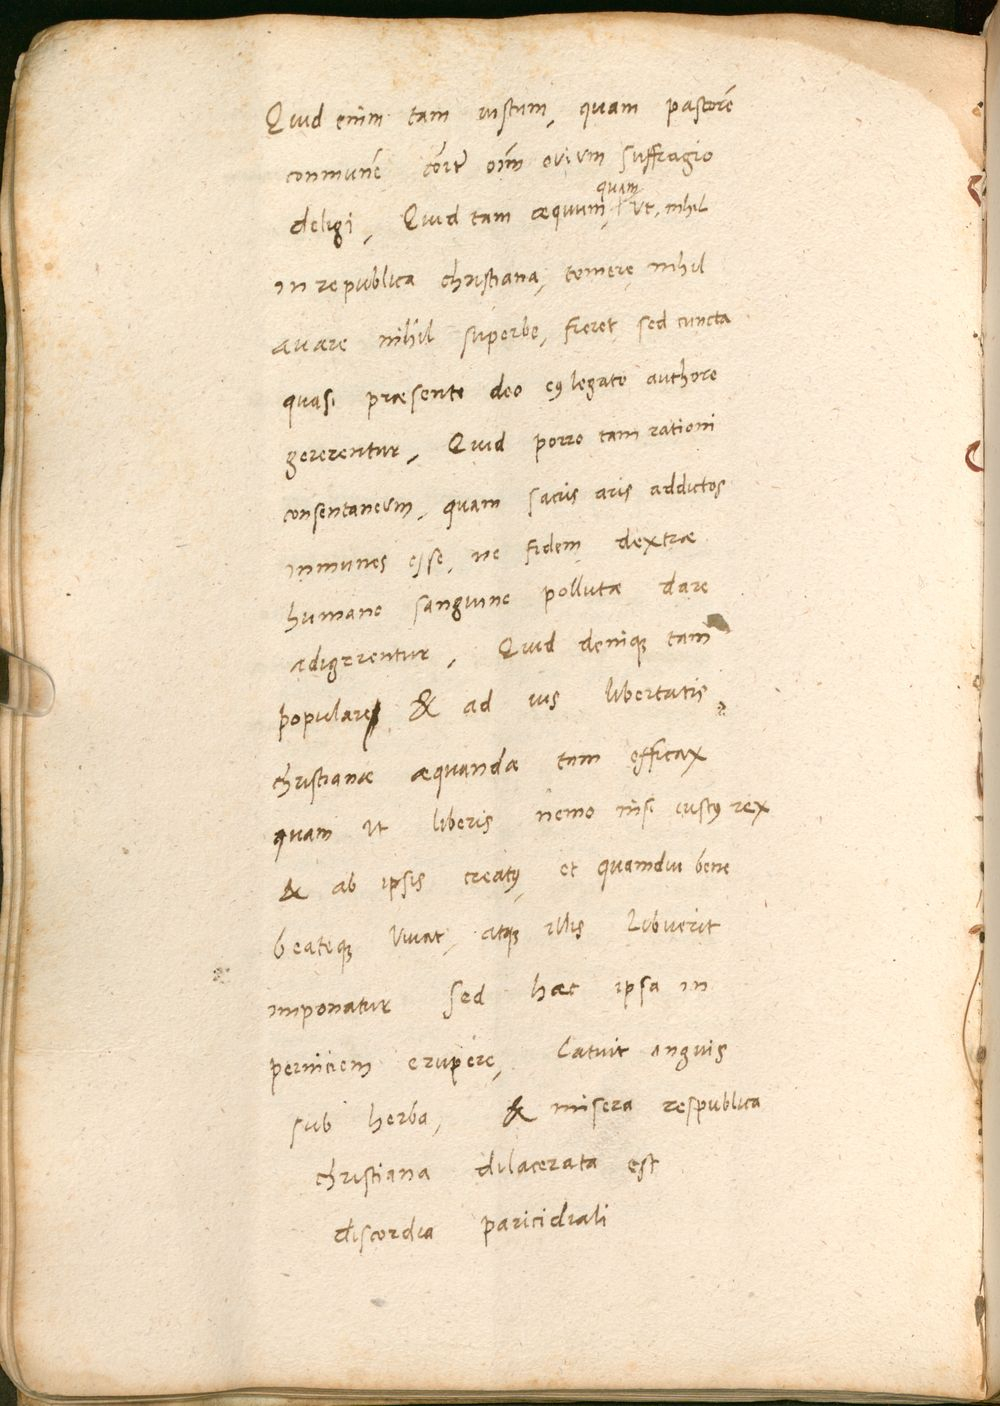 Quid enim tam iustum, quam pastorē
conmunē cōiī oīm ovium suffragio
deligi, Quid tam æquum, quam ut, nihil
in republica christiana, temere, nihil
avare nihil superbe, fieret, sed cuncta
quasi præsente deo eꝰ legato authore
gererentur, Quid porro tam rationi
consentaneum, quam sacris aris addictos
inmunes esse, ne fidem dextræ
humano sanguine pollutæ dare
adigerentur, Quid deniqꝫ tam
populare & ad ius libertatis
christianæ æquandæ tam efficax
quam ut liberis nemo nisi iustꝰ rex
& ab ipsis creatꝰ, et quamdiu bene
beateqꝫ vivat, atqꝫ illis libuerit
imponatur sed hæc ipsa in
perniciem erupere, Latuit anguis
sub herba, & misera respublica
christiana dilacerata est
discordia paricidiali